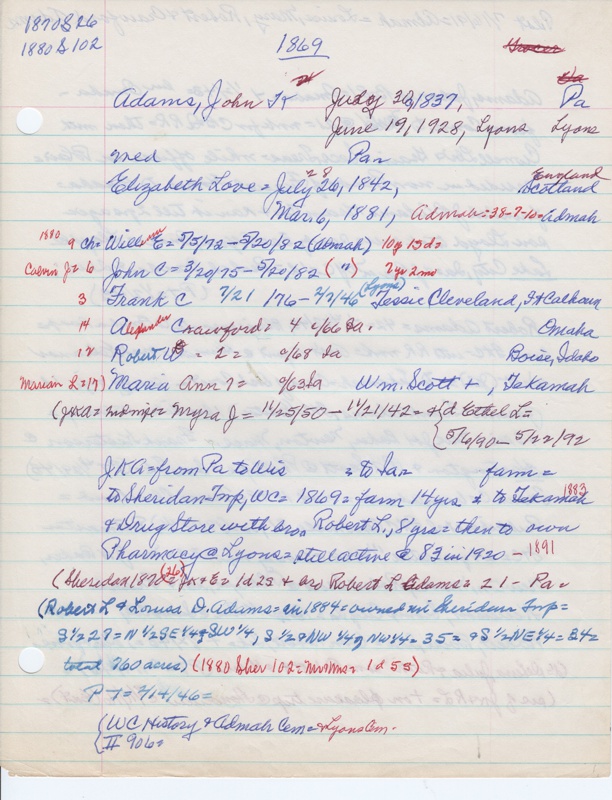 1870 S 26
1880 S 102
1869
Adams, John K July 30, 1837, Pa
June 19, 1928, Lyons Lyons
med Pa
Elizabeth Love = July 26, 1842, England Scotland
28
Mar. 6, 1881, Admah = 38-7-10 = Admah
1880 9 ch = Will E = 5/5/72 - 5/20/82 (Admah) 10y 15d =
Calvin J = 6 John C = 3/20/75 - 5/20/82 (") 7yr 2mo
3 Frank C 7/21/76 - 2/7/46 (Lyons) Jessie Cleveland, Ft Calhoun
14 Alexander Crawford = 4 c/66 Ia. Omaha
12 Robert W = 2 = c/68 Ia Boise, Idaho
Marian L = 17) Maria Ann ? = c/63 Ia Wm. Scott +, Tekamah
(JKA = Myra J = 11/25/50 - 11/21/42 = + {d Ethel L =
5/6/90 - 5/22/92
JKA = from Pa to Wis = to Ia = farm =
to Sheridan Twp, WC = 1869 = farm 14 yrs + to Tekamah 1883
+ Drug Store with bro. Robert L., 8 yrs = then to own
Pharmacy @ Lyons = still active @ 83 in 1920 - 1891
(Sheridan 1870 (26) = JK + E = 1d 2s + bro Robert L Adams = 21 - Pa.
(Robert L + Louisa D. Adams = in 1884 = owned in Sheridan Twp =
S 1/2 27 = N 1/2 SE 1/4 + SW 1/4, S 1/2 + NW 1/4 of NW 1/4 = 35 = + S 1/2 NE 1/4 = 34 =
total 760 acres) (1880 Sher 102 = Mr + Mrs = 1d 5s)
P T = 2/14/46 =
{WC History + Admah Cem = + Lyons Cem.
II 906 =